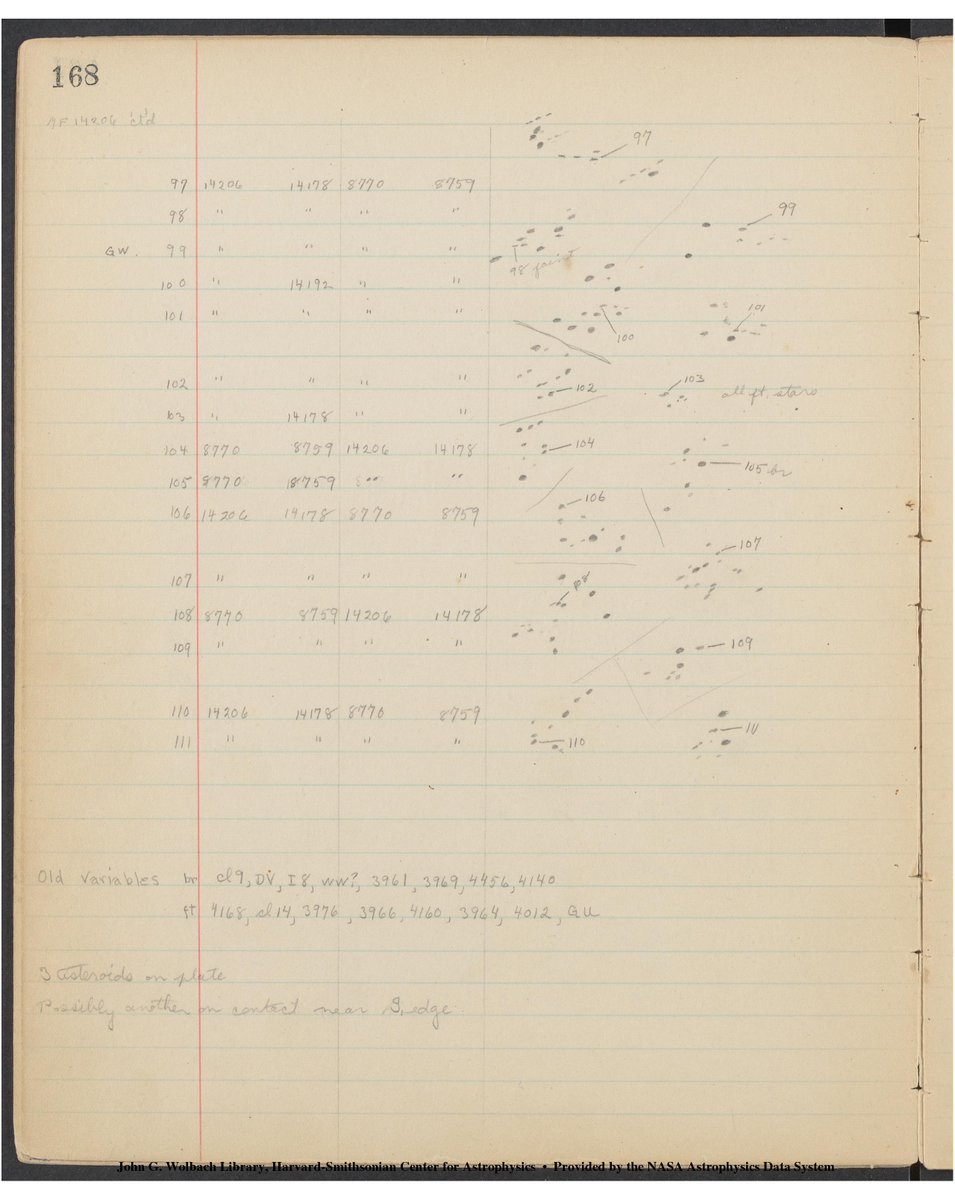 168
MF 14206 ctd
97 14206 14178 8770 8759 97
98 " " " "
GW. 99 " " " " 99
98 faint
100 " 14192 " "
101 " " " " 100 101
102 " " " " 102 103 all ft. stars
103 " 14178 " "
104 8770 8759 14206 14178 104
105 8770 18759 " " 105 br
106 14206 14178 8770 8759 106
107 " " " " 107
108 8770 8759 14206 14178 108
109 " " " " 109
110 14206 14178 8770 8759
111 " " " " 110 111
Old Variables br cl 9, DV, I 8, WW?, 3961, 3969, 4456, 4140
ft 4168, cl 14, 3976, 3966, 4160, 3964, 4012, GU
3 asteroids on plate
Possibly another on contact near S. edge.
John G. Wolbach Library, Harvard-Smithsonian Center for Astrophysics • Provided by the NASA Astrophysics Data System